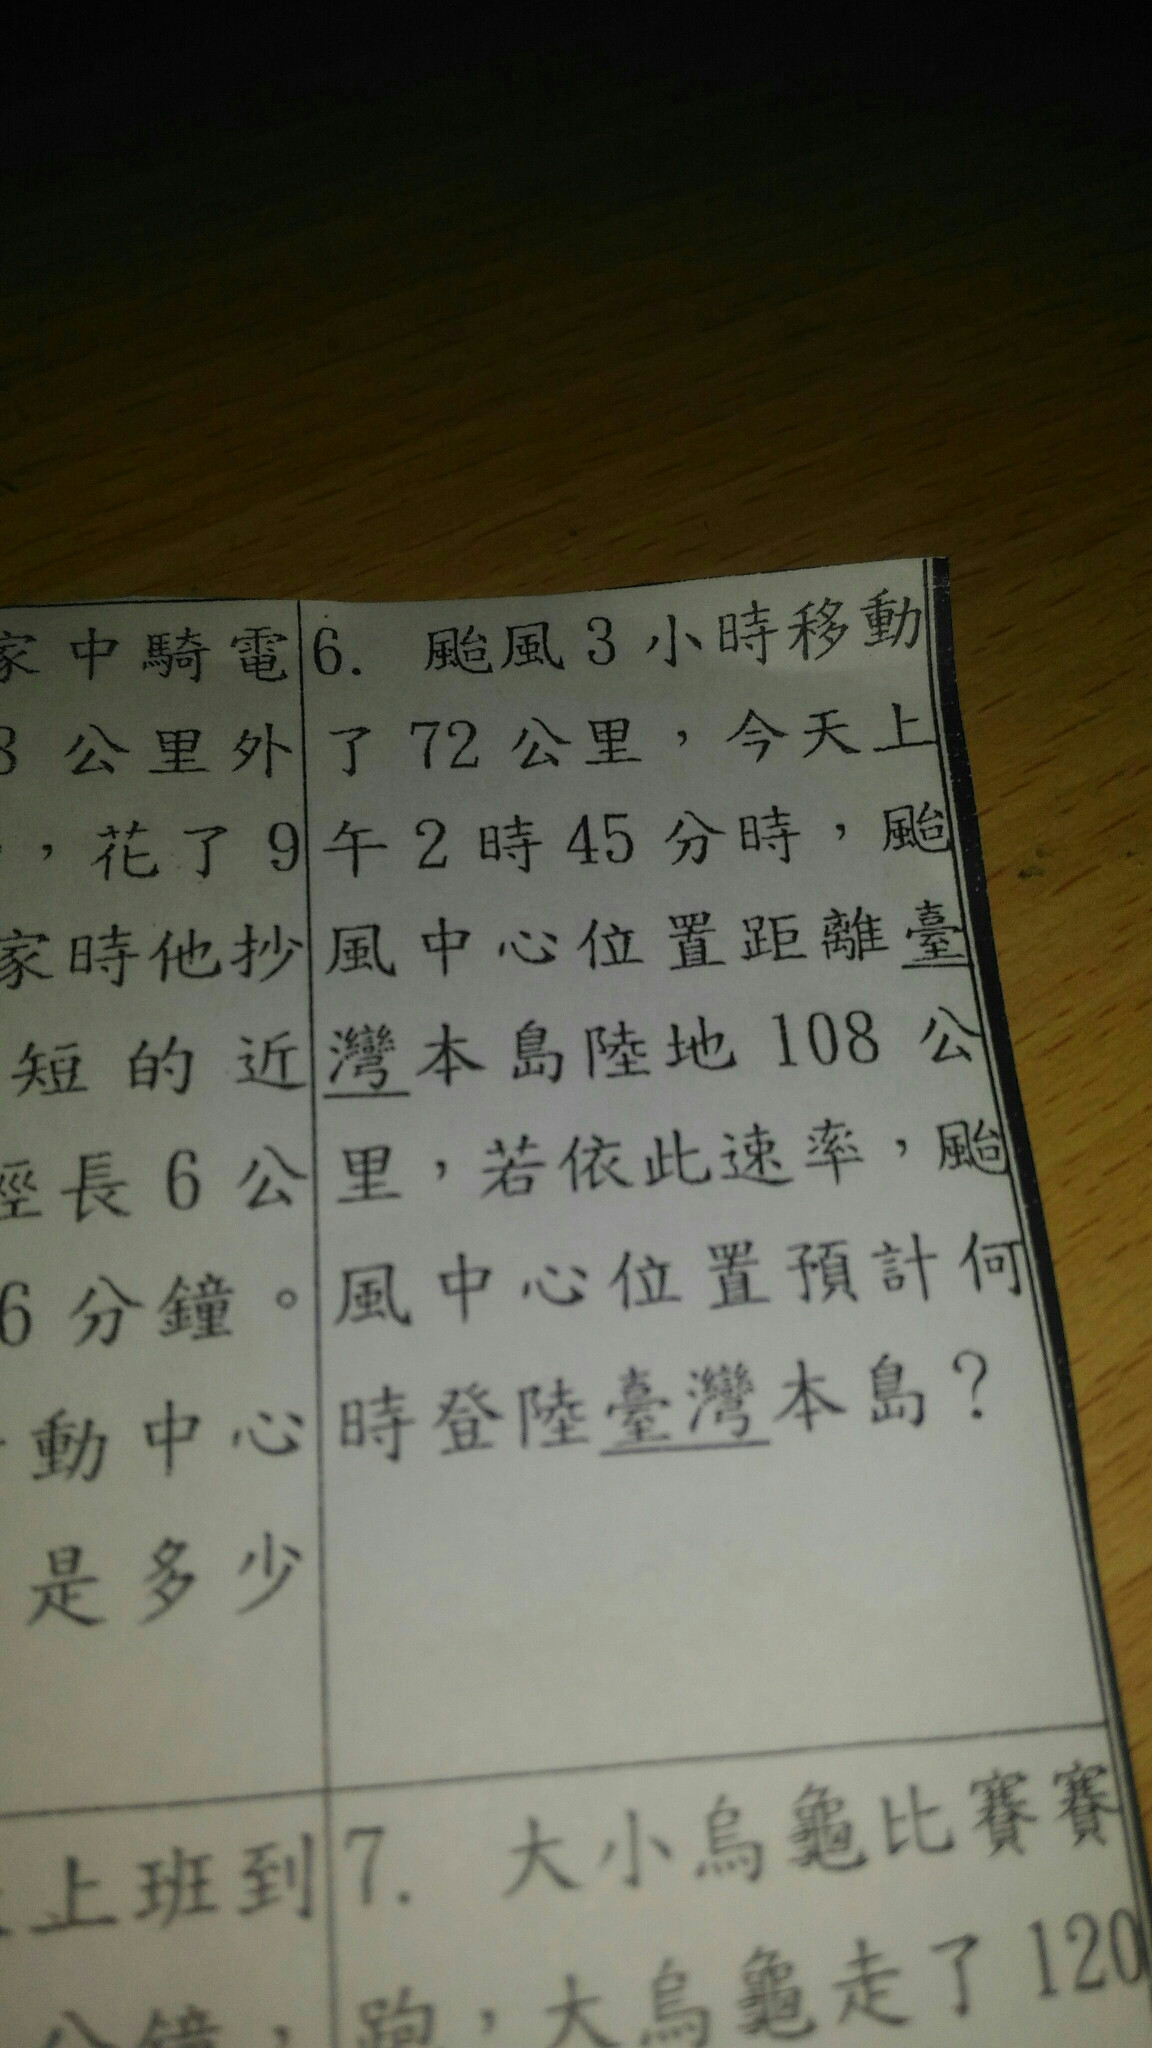 家中騎電
3 公里外
，花了 9
家時他抄
短的近
徑長 6 公
6 分鐘。
動中心
是多少
6. 颱風 3 小時移動
了 72 公里，今天上
午 2 時 45 分時，颱
風中心位置距離臺
灣本島陸地 108 公
里，若依此速率，颱
風中心位置預計何
時登陸臺灣本島？
上班到
分鐘，
7. 大小烏龜比賽賽
跑，大烏龜走了 120